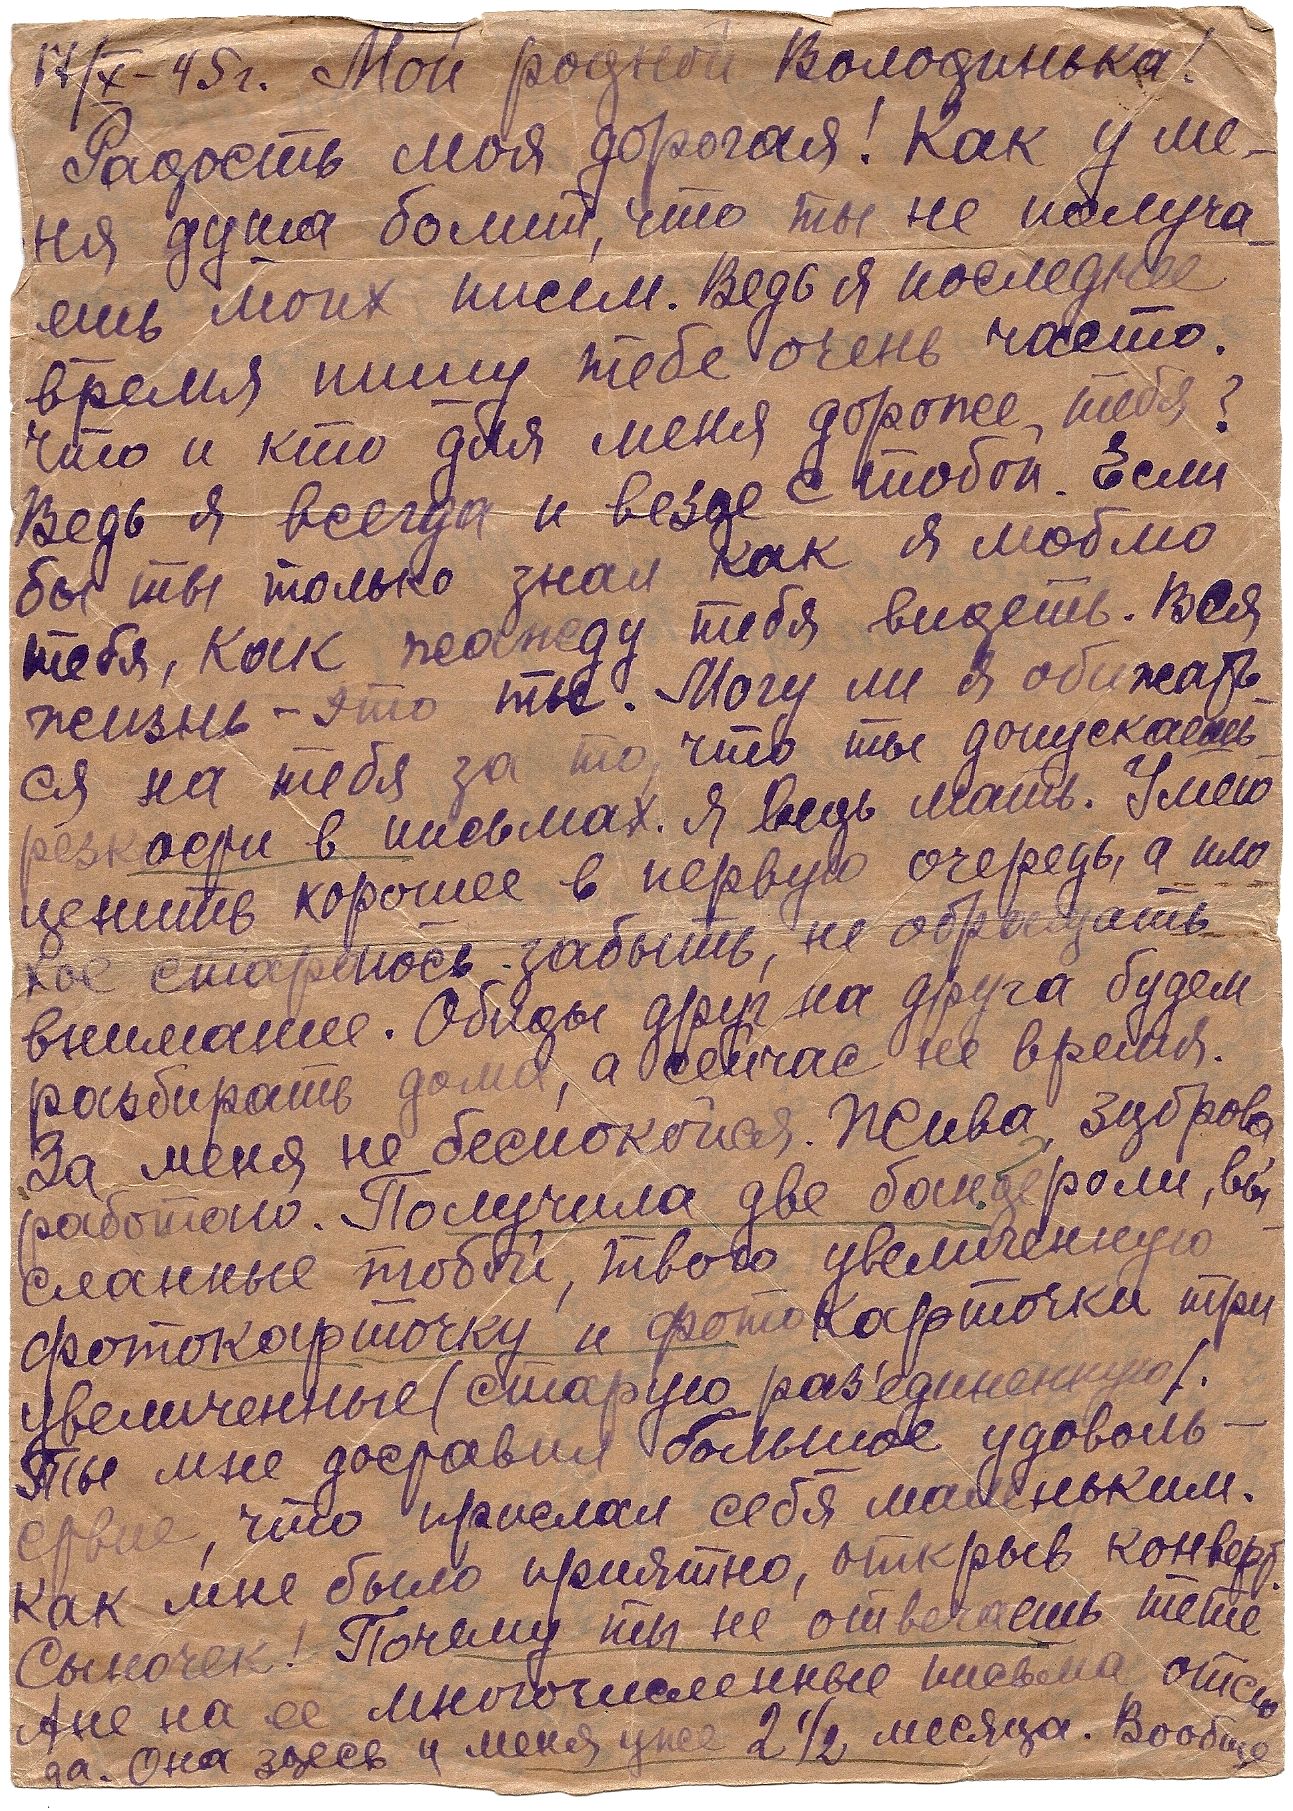 17/X-45г. Мой родной Володинька!
Радость моя дорогая! Как у ме-
ня душа болит, что ты не получа-
ешь моих писем. Ведь я последнее
время пишу тебе очень часто.
Что и кто для меня дороже тебя?
Ведь я всегда и везде с тобой. Если
бы ты только знал как я люблю
тебя, как жажду тебя видеть. Вся
жизнь - это ты. Могу ли я обижать-
ся на тебя за то, что ты допускаешь
резкости в письмах. Я ведь мать. Умею
ценить хорошее в первую очередь, а пло
хое стараюсь забыть, не обращать
внимание. Обиды друг на друга будем
разбирать дома, а сейчас не время.
За меня не беспокойся. Жива, здорова
работаю. Получила две бандероли, вы-
сланные тобой, твою увеличенную
фотокарточку и фотокарточки три
увеличенные (старую раз'единенную).
Ты мне доставил большое удоволь-
ствие, что прислал себя маленьким.
Как мне было приятно, открыв конверт.
Сыночек! Почему ты не отвечаешь тете
Ане на ее многочисленные письма отсю
да. Она здесь у меня уже 2 1/2 месяца. Вообще